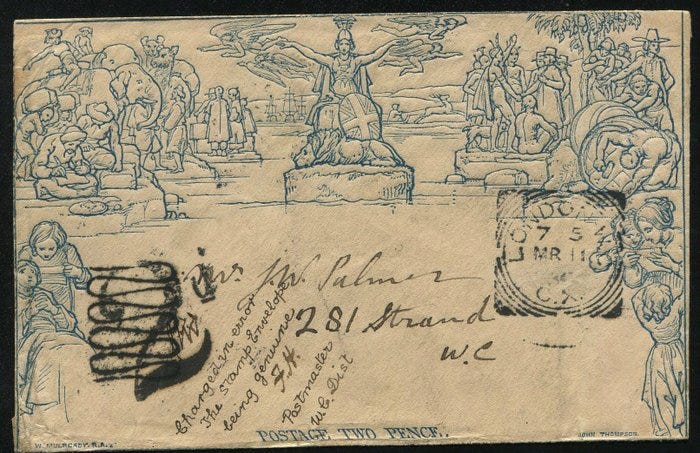 LONDON
7 5
MR 11
C.X
Mrs J.W. Palmer
281 Strand
W.C
Charged in error
The stamp Envelope
being genuine
F.H.
Postmaster
W.C. Dist
POSTAGE TWO PENCE.
W. MULREADY. R.A.
JOHN THOMPSON.